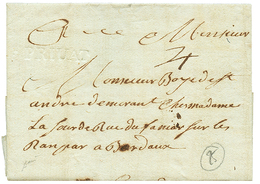 A Monsieur
4
A Monsieur Boyedest
andre demorant Chesmadame
La Sourde Rue du
sur les
Ranpar a Bordaux
8